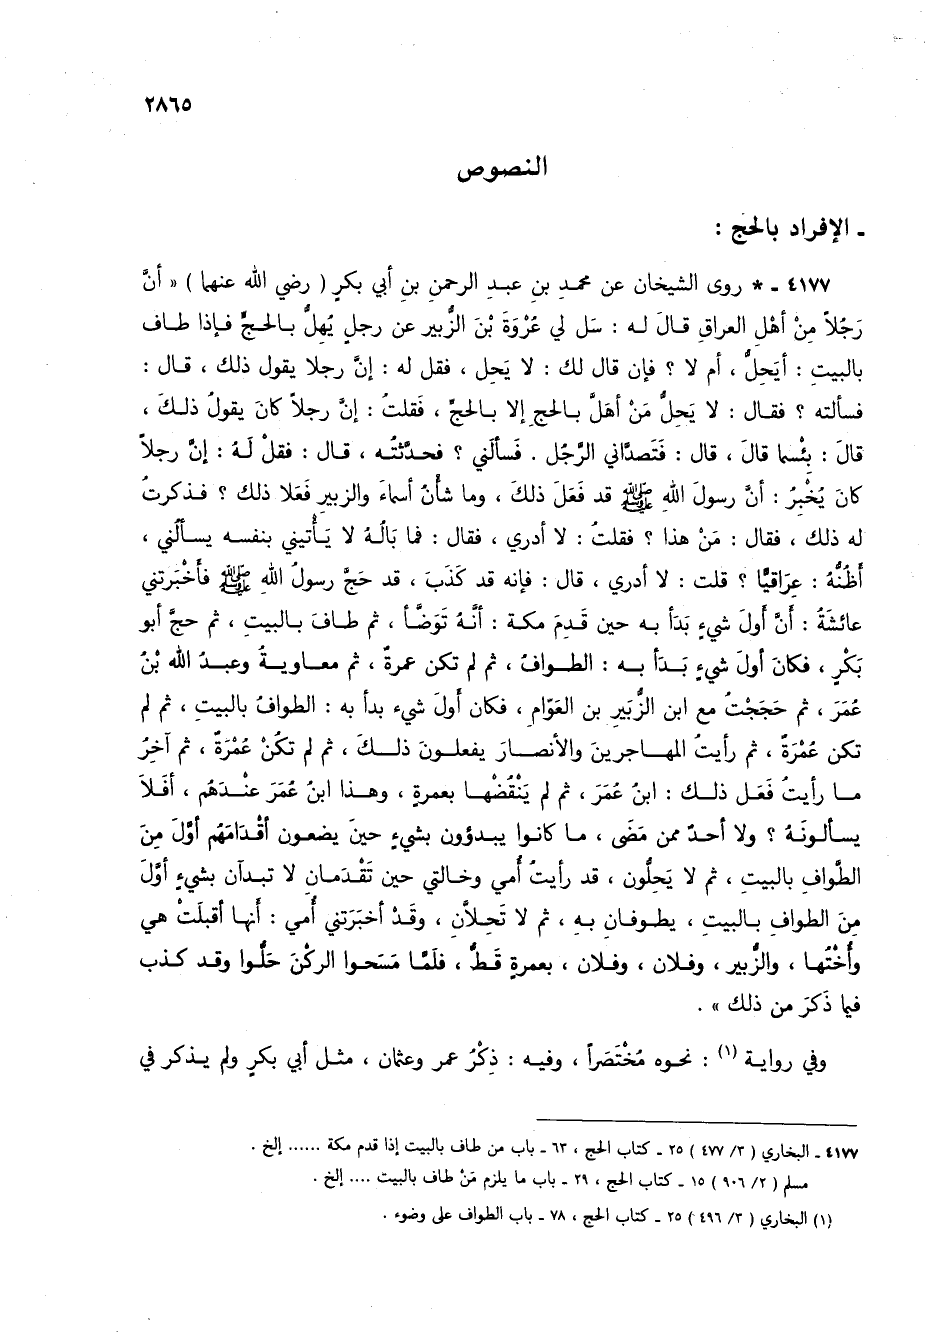 ٢٨٦٥
النصوص
ـ الإفراد بالحج :
٤١٧٧ ـ * روى الشيخان عن محمدِ بنِ عبدِ الرحمنِ بنِ أبي بكرٍ ( رضي الله عنهما ) « أنَّ
رَجُلاً مِنْ أهْلِ العراقِ قالَ له : سَل لي عُرْوَةَ بْنَ الزُّبيرِ عن رجلٍ يُهِلُّ بالحجِّ فإذا طاف
بالبيتِ : أيَحِلُّ ، أم لا ؟ فإن قال لك : لا يَحِل ، فقل له : إنَّ رجلا يقول ذلك ، قال :
فسألته ؟ فقال : لا يَحِلُّ مَنْ أهَلَّ بالحجِ إلا بالحجِّ ، فقلتُ : إنَّ رجلاً كانَ يقولُ ذلكَ ،
قالَ : بئْسما قالَ ، قال : فَتَصدَّاني الرَّجُل . فَسألَني ؟ فحدَّثتُه ، قال : فقلْ لَهُ : إنَّ رجلاً
كانَ يُخْبِرُ : أنَّ رسولَ اللهِ ﷺ قد فَعَلَ ذلكَ ، وما شأنُ أسماءَ والزبيرِ فَعَلا ذلك ؟ فذكرتُ
له ذلك ، فقال : مَنْ هذا ؟ فقلتُ : لا أدري ، فقال : فما بَالُهُ لا يَأْتيني بنفسه يسألُني ،
أَظُنُّهُ : عِرَاقيًّا ؟ قلت : لا أدري ، قال : فإنه قد كَذَبَ ، قد حَجَّ رسولُ اللهِ ﷺ فأَخْبَرتني
عائشةُ : أنَّ أولَ شيءٍ بَدَأ به حين قَدِمَ مكة : أنَّهُ تَوَضَّأ ، ثم طافَ بالبيتِ ، ثم حجَّ أبو
بَكْرٍ ، فكانَ أولَ شيءٍ بَدَأ به : الطوافُ ، ثم لم تكن عمرةٌ ، ثم معاويةُ وعبدُ الله بْنُ
عُمَرَ ، ثم حَجَجْتُ مع ابن الزُّبَيرِ بنِ العَوَّامِ ، فكان أولَ شيء بدأ به : الطوافُ بالبيتِ ، ثم لم
تكن عُمْرَةً ، ثم رأيتُ المهاجرينَ والأنصارَ يفعلونَ ذلكَ ، ثم لم تكُنْ عُمْرَةً ، ثم آخرُ
ما رأيتُ فَعَل ذلك : ابنُ عُمَرَ ، ثم لم يَنْقُضْها بعمرةٍ ، وهذا ابنُ عُمَرَ عنْدَهُم ، أفَلاَ
يسألونَهُ ؟ ولا أحدٌ ممن مَضَى ، ما كانوا يبدؤون بشيءٍ حينَ يضعون أقْدَامَهُم أوَّلَ مِنَ
الطَّوافِ بالبيتِ ، ثم لا يَحِلُّون ، قد رأيتُ أُمي وخالتي حين تَقْدَمانِ لا تبدآن بشيءٍ أوَّلَ
مِنَ الطوافِ بالبيتِ ، يطوفان به ، ثم لا تَحلاَّن ، وقَدْ أخبَرتني أُمي : أَنها أقبلَتْ هي
وأُخْتُها ، والزُّبير ، وفلان ، وفلان ، بعمرةٍ قَطُّ ، فلَمَّا مَسَحوا الركْنَ حَلُّوا وقد كذب
فيما ذَكَرَ من ذلك » .
وفي رواية (١) : نحوه مُخْتَصَراً ، وفيه : ذِكْرُ عمر وعثمان ، مثل أبي بكرٍ ولم يذكر في
٤١٧٧ ـ البخاري ( ٣/ ٤٧٧ ) ٢٥ ـ كتاب الحج ، ٦٣ ـ باب من طاف بالبيت إذا قدم مكة ...... إلخ .
مسلم ( ٢/ ٩٠٦ ) ١٥ ـ كتاب الحج ، ٢٩ ـ باب ما يلزم مَنْ طاف بالبيت .... إلخ .
(١) البخاري ( ٣/ ٤٩٦ ) ٢٥ ـ كتاب الحج ، ٧٨ ـ باب الطواف على وضوء .